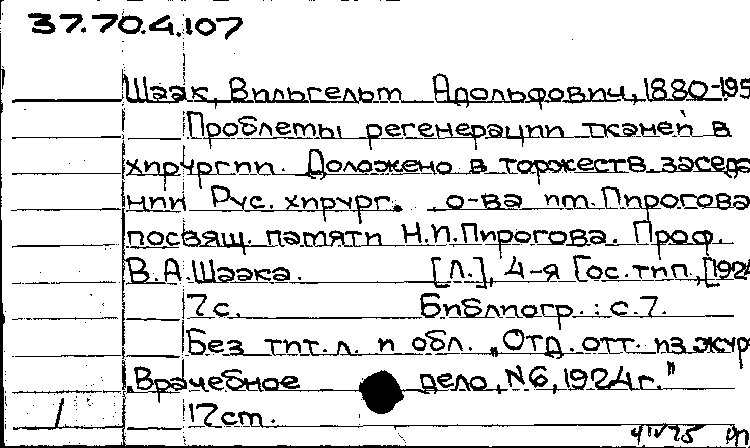 37.70.4.107
Шаак, Вильгельм Адольфович, 1880-195
Проблемы регенерации тканей в
хирургии. Доложено в торжеств. заседа
нии Рус. хирург. о-ва им. Пирогова
посвящ. памяти Н.И.Пирогова. Проф.
В.А.Шаака. [Л.], 4-я Гос.тип., [1924
7с. Библиогр.: с.7.
Без тит.л. и обл. „Отд. отт. из жур
„Врачебное дело, N6, 1924г."
17cm.